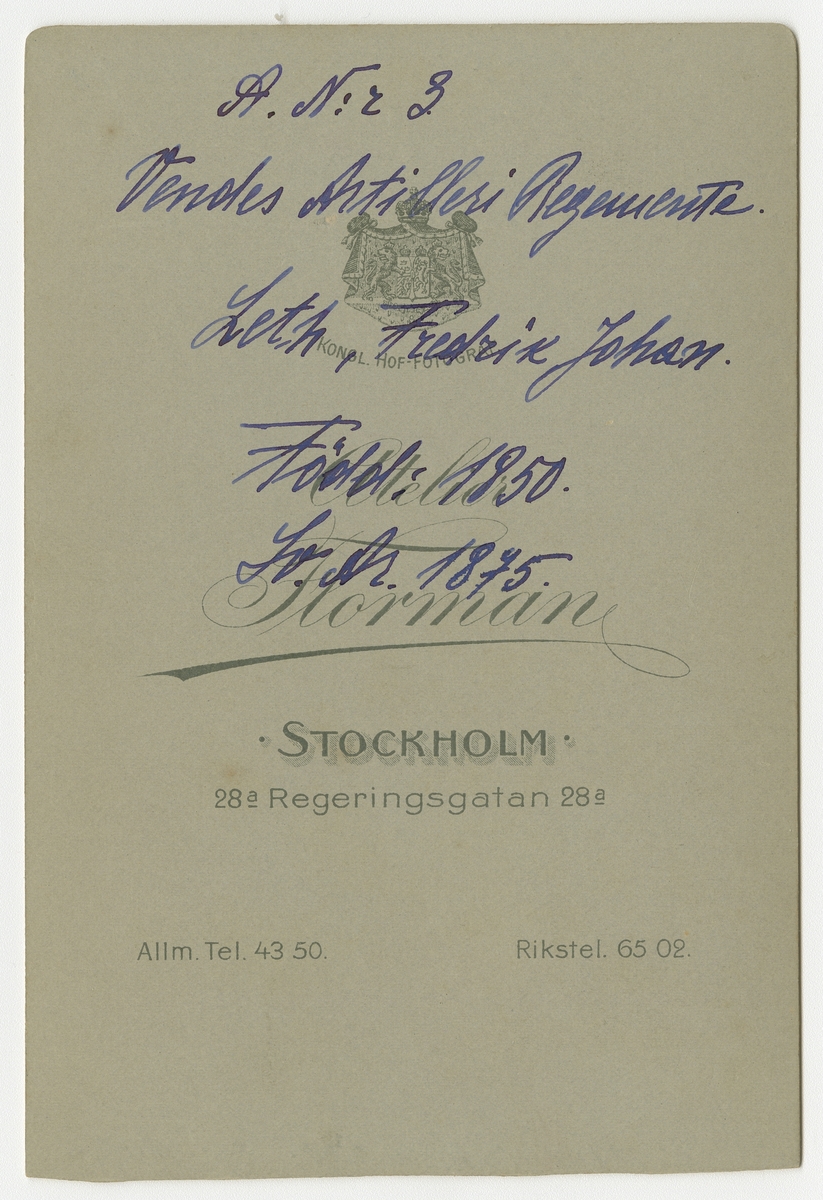 A. N:r 3
Vendes Artilleri Regemente.
Leth, Fredrik Johan.
KONGL. HOF-FOTOGRAF
Född: 1850.
Atelier
Lö. Ar. 1875.
Florman
· STOCKHOLM ·
28a Regeringsgatan 28a
Allm. Tel. 43 50. Rikstel. 65 02.